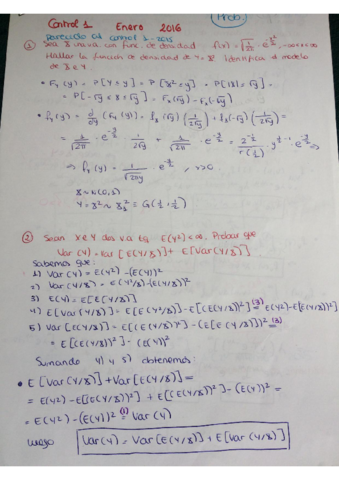 Prob.
Control 1 Enero 2016
Parecido al control 1 - 2015
① Sea X una v.a con func. de densidad f(x) = √(1/2π) · e^(-x²/2), -∞<x<∞
Hallar la función de densidad de Y = X². Identifica el modelo
de X e Y
• F_Y(y) = P[Y ≤ y] = P[X² ≤ y] = P[|X| ≤ √y] =
= P[-√y ≤ X ≤ √y] = F_X(√y) - F_X(-√y)
• f_Y(y) = ∂/∂y (F_Y(y)) = f_X(√y) (1/2√y) + f_X(-√y) (1/2√y) =
= 1/√2π · e^(-y/2) · 1/2√y + 1/√2π · e^(-y/2) · 1/2√y = 2^(-1/2)/Γ(1/2) · y^(1/2-1) · e^(-y/2) ⇒
⇒ f_Y(y) = 1/√2πy · e^(-y/2), y>0
X ~ N(0,1)
Y = X² ~ χ²₁ = G(1/2, 1/2)
② Sean X e Y dos v.a tq E(Y²) < ∞, Probar que
Var(Y) = Var[E(Y/X)] + E[Var(Y/X)]
Sabemos que:
1) Var(Y) = E(Y²) - (E(Y))²
2) Var(Y/X) = E(Y²/X) - (E(Y/X))²
3) E(Y) = E[E(Y/X)]
4) E[Var(Y/X)] = E[E(Y²/X)] - E[(E(Y/X))²] =(3) E(Y²) - E[(E(Y/X))²]
5) Var[E(Y/X)] = E[(E(Y/X))²] - (E[E(Y/X)])² =(3)
= E[(E(Y/X))²] - (E(Y))²
Sumando 4) y 5) obtenemos:
• E[Var(Y/X)] + Var[E(Y/X)] =
= E(Y²) - E[(E(Y/X))²] + E[(E(Y/X))²] - (E(Y))² =
= E(Y²) - (E(Y))² =(1) Var(Y)
luego Var(Y) = Var[E(Y/X)] + E[Var(Y/X)]